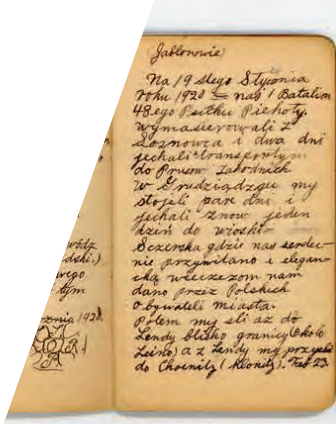 wódz
dski.)
wego
tym
cznia 1920.
R.
Jabłonowie
Na 19 stego Stycznia
roku 1920 nas 1 Batalion
48-ego Pułku Piechoty.
wymasierowali z
Sosnowca i dwa dni
jechali transportym
do Prusow Zahodnich
W Grudziądzgu my
stojeli pare dni i
jechali znow jeden
dzień do wioski
Sczerska gdzie nas serdec-
nie przywitano i elegan-
cką wieczezom nam
dano przez Polskich
obywateli miasta.
Potem my sli az do
Lendy blisko granicy (około
Leśno) a z Landy my przyszli
do Choenitz (Klonitz). Feb 23.